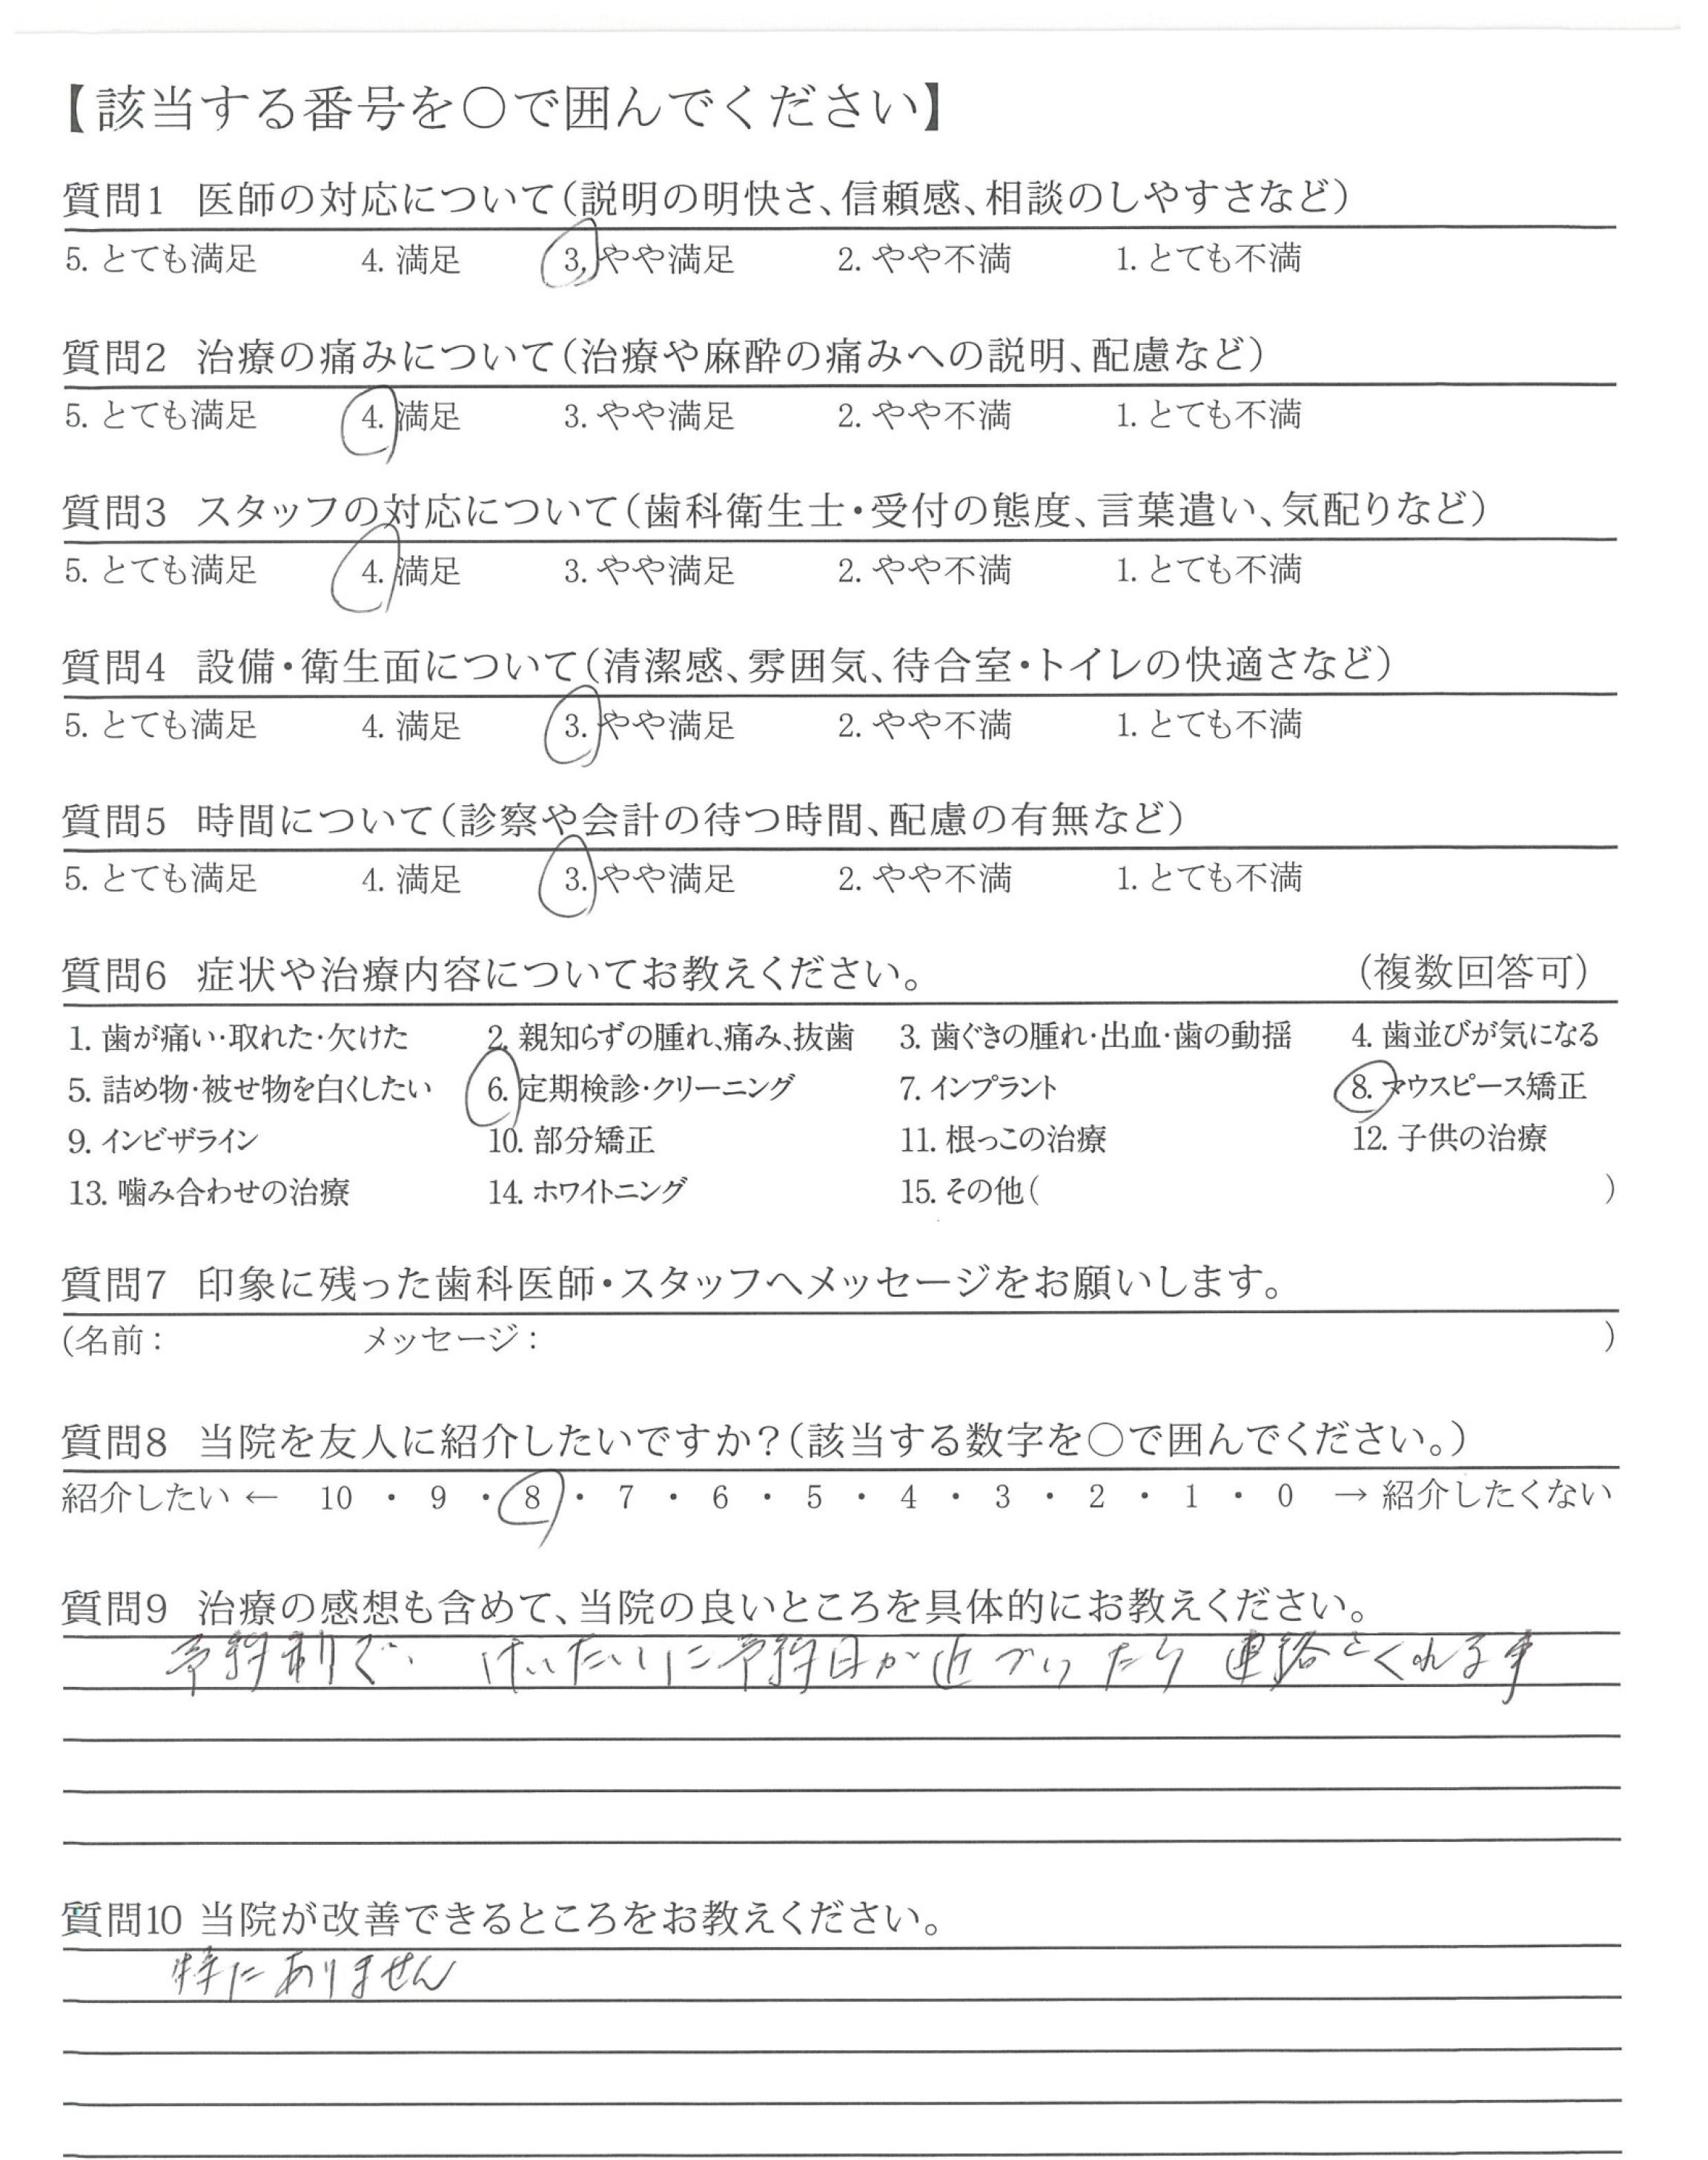 【該当する番号を○で囲んでください】
質問1 医師の対応について(説明の明快さ、信頼感、相談のしやすさなど)
5. とても満足 4. 満足 3. やや満足 2. やや不満 1. とても不満
質問2 治療の痛みについて(治療や麻酔の痛みへの説明、配慮など)
5. とても満足 4. 満足 3. やや満足 2. やや不満 1. とても不満
質問3 スタッフの対応について(歯科衛生士・受付の態度、言葉遣い、気配りなど)
5. とても満足 4. 満足 3. やや満足 2. やや不満 1. とても不満
質問4 設備・衛生面について(清潔感、雰囲気、待合室・トイレの快適さなど)
5. とても満足 4. 満足 3. やや満足 2. やや不満 1. とても不満
質問5 時間について(診察や会計の待つ時間、配慮の有無など)
5. とても満足 4. 満足 3. やや満足 2. やや不満 1. とても不満
質問6 症状や治療内容についてお教えください。 (複数回答可)
1. 歯が痛い・取れた・欠けた 2. 親知らずの腫れ、痛み、抜歯 3. 歯ぐきの腫れ・出血・歯の動揺 4. 歯並びが気になる
5. 詰め物・被せ物を白くしたい 6. 定期検診・クリーニング 7. インプラント 8. マウスピース矯正
9. インビザライン 10. 部分矯正 11. 根っこの治療 12. 子供の治療
13. 噛み合わせの治療 14. ホワイトニング 15. その他( )
質問7 印象に残った歯科医師・スタッフへメッセージをお願いします。
(名前: メッセージ: )
質問8 当院を友人に紹介したいですか?(該当する数字を○で囲んでください。)
紹介したい ← 10 ・ 9 ・ 8 ・ 7 ・ 6 ・ 5 ・ 4 ・ 3 ・ 2 ・ 1 ・ 0 → 紹介したくない
質問9 治療の感想も含めて、当院の良いところを具体的にお教えください。
予約制で、けいたいに予約日が近づいたら連絡をくれる事
質問10 当院が改善できるところをお教えください。
特にありません